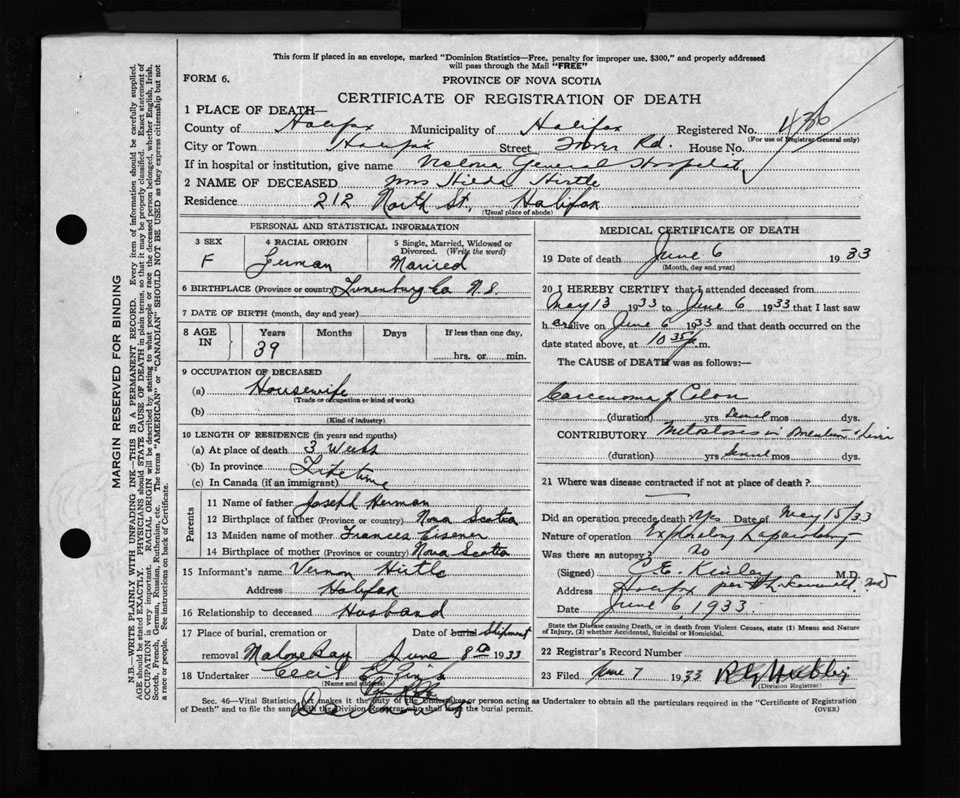 This form if placed in an envelope, marked "Dominion Statistics—Free, penalty for improper use, $300," and properly addressed
will pass through the Mail "FREE"
FORM 6.
PROVINCE OF NOVA SCOTIA
CERTIFICATE OF REGISTRATION OF DEATH
1 PLACE OF DEATH—
County of Halifax Municipality of Halifax Registered No. 436
(For use of Registrar General only)
City or Town Halifax Street Tower Rd. House No.
If in hospital or institution, give name Victoria General Hospital
2 NAME OF DECEASED Mrs Hilda Hirtle
Residence 212 North St., Halifax
(Usual place of abode)
PERSONAL AND STATISTICAL INFORMATION
3 SEX F
4 RACIAL ORIGIN German
5 Single, Married, Widowed or Divorced. (Write the word) Married
6 BIRTHPLACE (Province or country) Lunenburg Co N.S.
7 DATE OF BIRTH (month, day and year)
8 AGE IN Years 39 Months Days If less than one day, hrs. or min.
9 OCCUPATION OF DECEASED
(a) Housewife
(Trade or occupation or kind of work)
(b)
(Kind of industry)
10 LENGTH OF RESIDENCE (in years and months)
(a) At place of death 3 Weeks
(b) In province Lifetime
(c) In Canada (if an immigrant)
Parents
11 Name of father Joseph Herman
12 Birthplace of father (Province or country) Nova Scotia
13 Maiden name of mother Frances Eisener
14 Birthplace of mother (Province or country) Nova Scotia
15 Informant's name Vernon Hirtle
Address Halifax
16 Relationship to deceased Husband
17 Place of burial, cremation or Date of burial Shipment
removal Mahone Bay June 8th 1933
18 Undertaker Cecil E.
(Name and address)
MEDICAL CERTIFICATE OF DEATH
19 Date of death June 6 1933
(Month, day and year)
20 I HEREBY CERTIFY that I attended deceased from
May 13 1933 to June 6 1933 that I last saw
her alive on June 6 1933 and that death occurred on
date stated above, at 10 35 p.m.
The CAUSE of DEATH was as follows:—
Carcinoma of Colon
(duration) yrs several mos dys.
CONTRIBUTORY Metastases in
(duration) yrs several mos dys.
21 Where was disease contracted if not at place of death?
Did an operation precede death? Yes Date of May 15/33
Nature of operation Exploratory Laparotomy
Was there an autopsy? no
(Signed) C.E. Kinley M.D.
Address Halifax per
Date June 6 1933
State the Disease causing Death, or in death from Violent Causes, state (1) Means and Nature
of Injury, (2) whether Accidental, Suicidal or Homicidal.
22 Registrar's Record Number
23 Filed June 7 1933
(Division Registrar)
Sec. 46—Vital Statistics Act makes it the duty of the Undertaker or person acting as Undertaker to obtain all the particulars required in the "Certificate of Registration
of Death" and to file the same with the Division Registrar who shall issue the burial permit. (OVER)
MARGIN RESERVED FOR BINDING
N.B.—WRITE PLAINLY WITH UNFADING INK—THIS IS A PERMANENT RECORD. Every item of information should be carefully supplied.
AGE should be stated EXACTLY. PHYSICIANS should STATE CAUSE OF DEATH in plain terms, so that it may be properly classified. Exact statement of
OCCUPATION is very important. RACIAL ORIGIN will be described by stating to what people or race the deceased person belonged, whether English, Irish,
Scotch, French, German, Russian, Ruthenian, etc. The terms "AMERICAN" or "CANADIAN" SHOULD NOT BE USED as they express citizenship but not
a race or people. See instructions on back of Certificate.